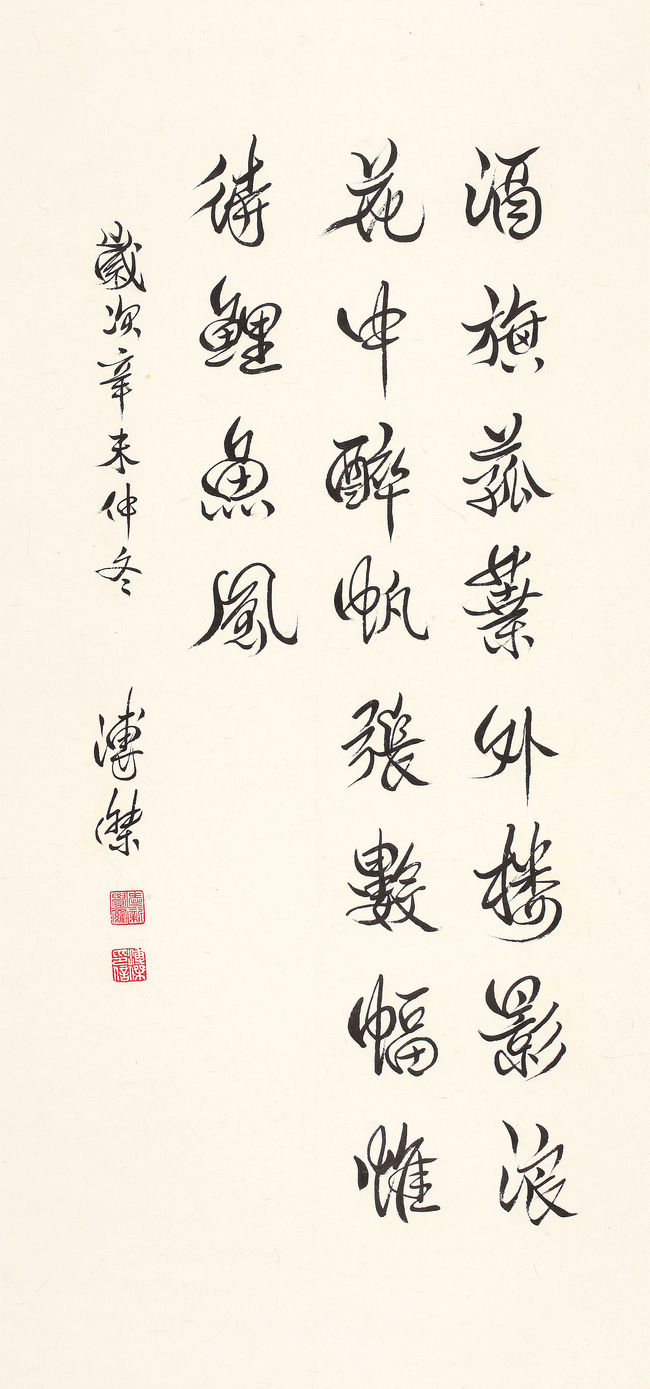 酒旗菰葉外楼影浪
花中醉帆張數幅惟
待鯉魚風
歲次辛未仲冬
溥傑
溥傑
印信